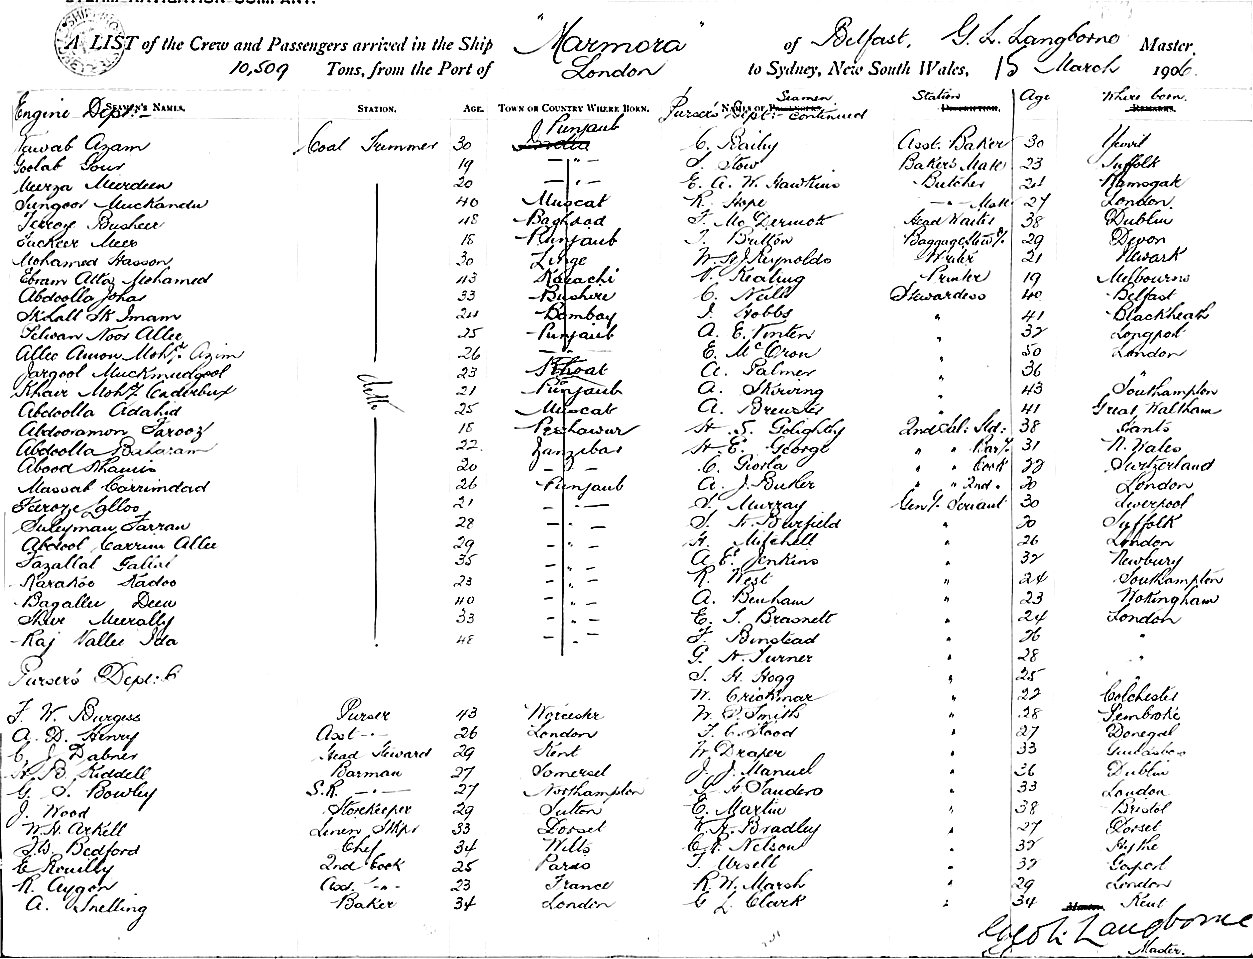 STEAM NAVIGATION COMPANY.
A LIST of the Crew and Passengers arrived in the Ship "Marmora" of Belfast, G. L. Langborne Master,
10,509 Tons, from the Port of London to Sydney, New South Wales, 15 March 1906.
Engine Dept:- SEAMEN'S NAMES. STATION. AGE. TOWN OR COUNTRY WHERE BORN. Purser's Dept:- continued NAMES OF Seamen Station Age Where born.
Nawab Azam Coal Trimmer 30 Punjaub C. Baihy Asst. Baker 30 Yeovil
Goolab Gour 19 -"- S. Stow Baker's Mate 23 Suffolk
Meerza Meerdeen 20 -"- E. A. W. Hawkins Butcher 24 Ramsgate
Sungoor Muckandu 40 Muscat R. Hope -"- Mate 27 London.
Feroze Busheer 48 Baghdad F. McDermott Head Waiter 38 Dublin
Fuckeer Meer 18 Punjaub T. Britton Baggage Stewd. 29 Devon
Mohamed Hasson 30 Linge W. H. J. Reynolds Writer 21 Newark
Ebram Attaz Mohamed 43 Karachi V. Keating Printer 19 Melbourne
Abdoolla Johar 33 Bushire C. Neill Stewardess 40 Belfast
Sk Lall Sk Imam 24 Bombay J. Hobbs " 41 Blackheath
Selwan Noor Allee 25 Punjaub A. E. Vinten " 32 Longport
Allee Amon Mohd. Azim 26 -"- E. McCron " 50 London
Jargool Muckmudgool 23 Khoat A. Palmer " 36 "
Khair Mohd. Caderbux ditto 21 Punjaub A. Skewing " 43 Southampton
Abdoolla Adahid 25 Muscat A. Brewster " 41 Great Waltham
Abdooramon Farooz 18 Peshawur H. S. Golightly 2nd Sal: Std: 38 Hants
Abdoolla Baharam 22 Zanzibar H. E. George " " Bar. 31 N. Wales
Abood Khamis 20 -"- C. Giorla " " Cook 22 Switzerland
Massab Carrimdad 26 Punjaub A. J. Buker " " 2nd " 20 London
Feroze Lalloo 21 -"- D. Murray Genl. Servant 30 Liverpool
Suleyman Farran 28 -"- S. H. Burfield " 20 Suffolk
Abdool Carrim Allee 29 -"- H. Mitchell " 26 London
Fazallal Galial 35 -"- A. E. Jenkins " 32 Newbury
Karakoo Kadoo 23 -"- R. West " 24 Southampton
Bagallee Deen 40 -"- A. Benham " 23 Wokingham
Sheer Meerally 33 -"- E. T. Brasnett " 24 London
Raj Vallee Ida 48 -"- F. Binstead " 26 "
G. H. Turner " 28 "
Purser's Dept: S. H. Hogg " 25 "
W. Crickmar " 22 Colchester
F. W. Burgess Purser 43 Worcester W. P. Smith " 28 Pembroke
A. D. Henry Asst -"- 26 London F. C. Hood " 27 Donegal
C. J. Dabner Head Steward 29 Kent W. Draper " 33
H. B. Riddell Barman 27 Somerset J. J. Manuel " 36 Dublin
G. S. Bowley S.R. -"- 27 Northampton G. H. Sanders " 33 London
J. Wood Storekeeper 29 Sutton E. Martin " 38 Bristol
W. H. Arkell Linen Stkpr 33 Dorset W. H. Bradley " 27 Dorset
J. W. Bedford Chef 34 Wilts C. E. Nelson " 32 Hythe
E. Rouilly 2nd Cook 25 Paris T. Ursell " 32 Gosport
R. Aygon Asst. -"- 23 France R. W. Marsh " 29 London
A. Snelling Baker 34 London G. L. Clark " 34 Kent
G. L. Langborne
Master.